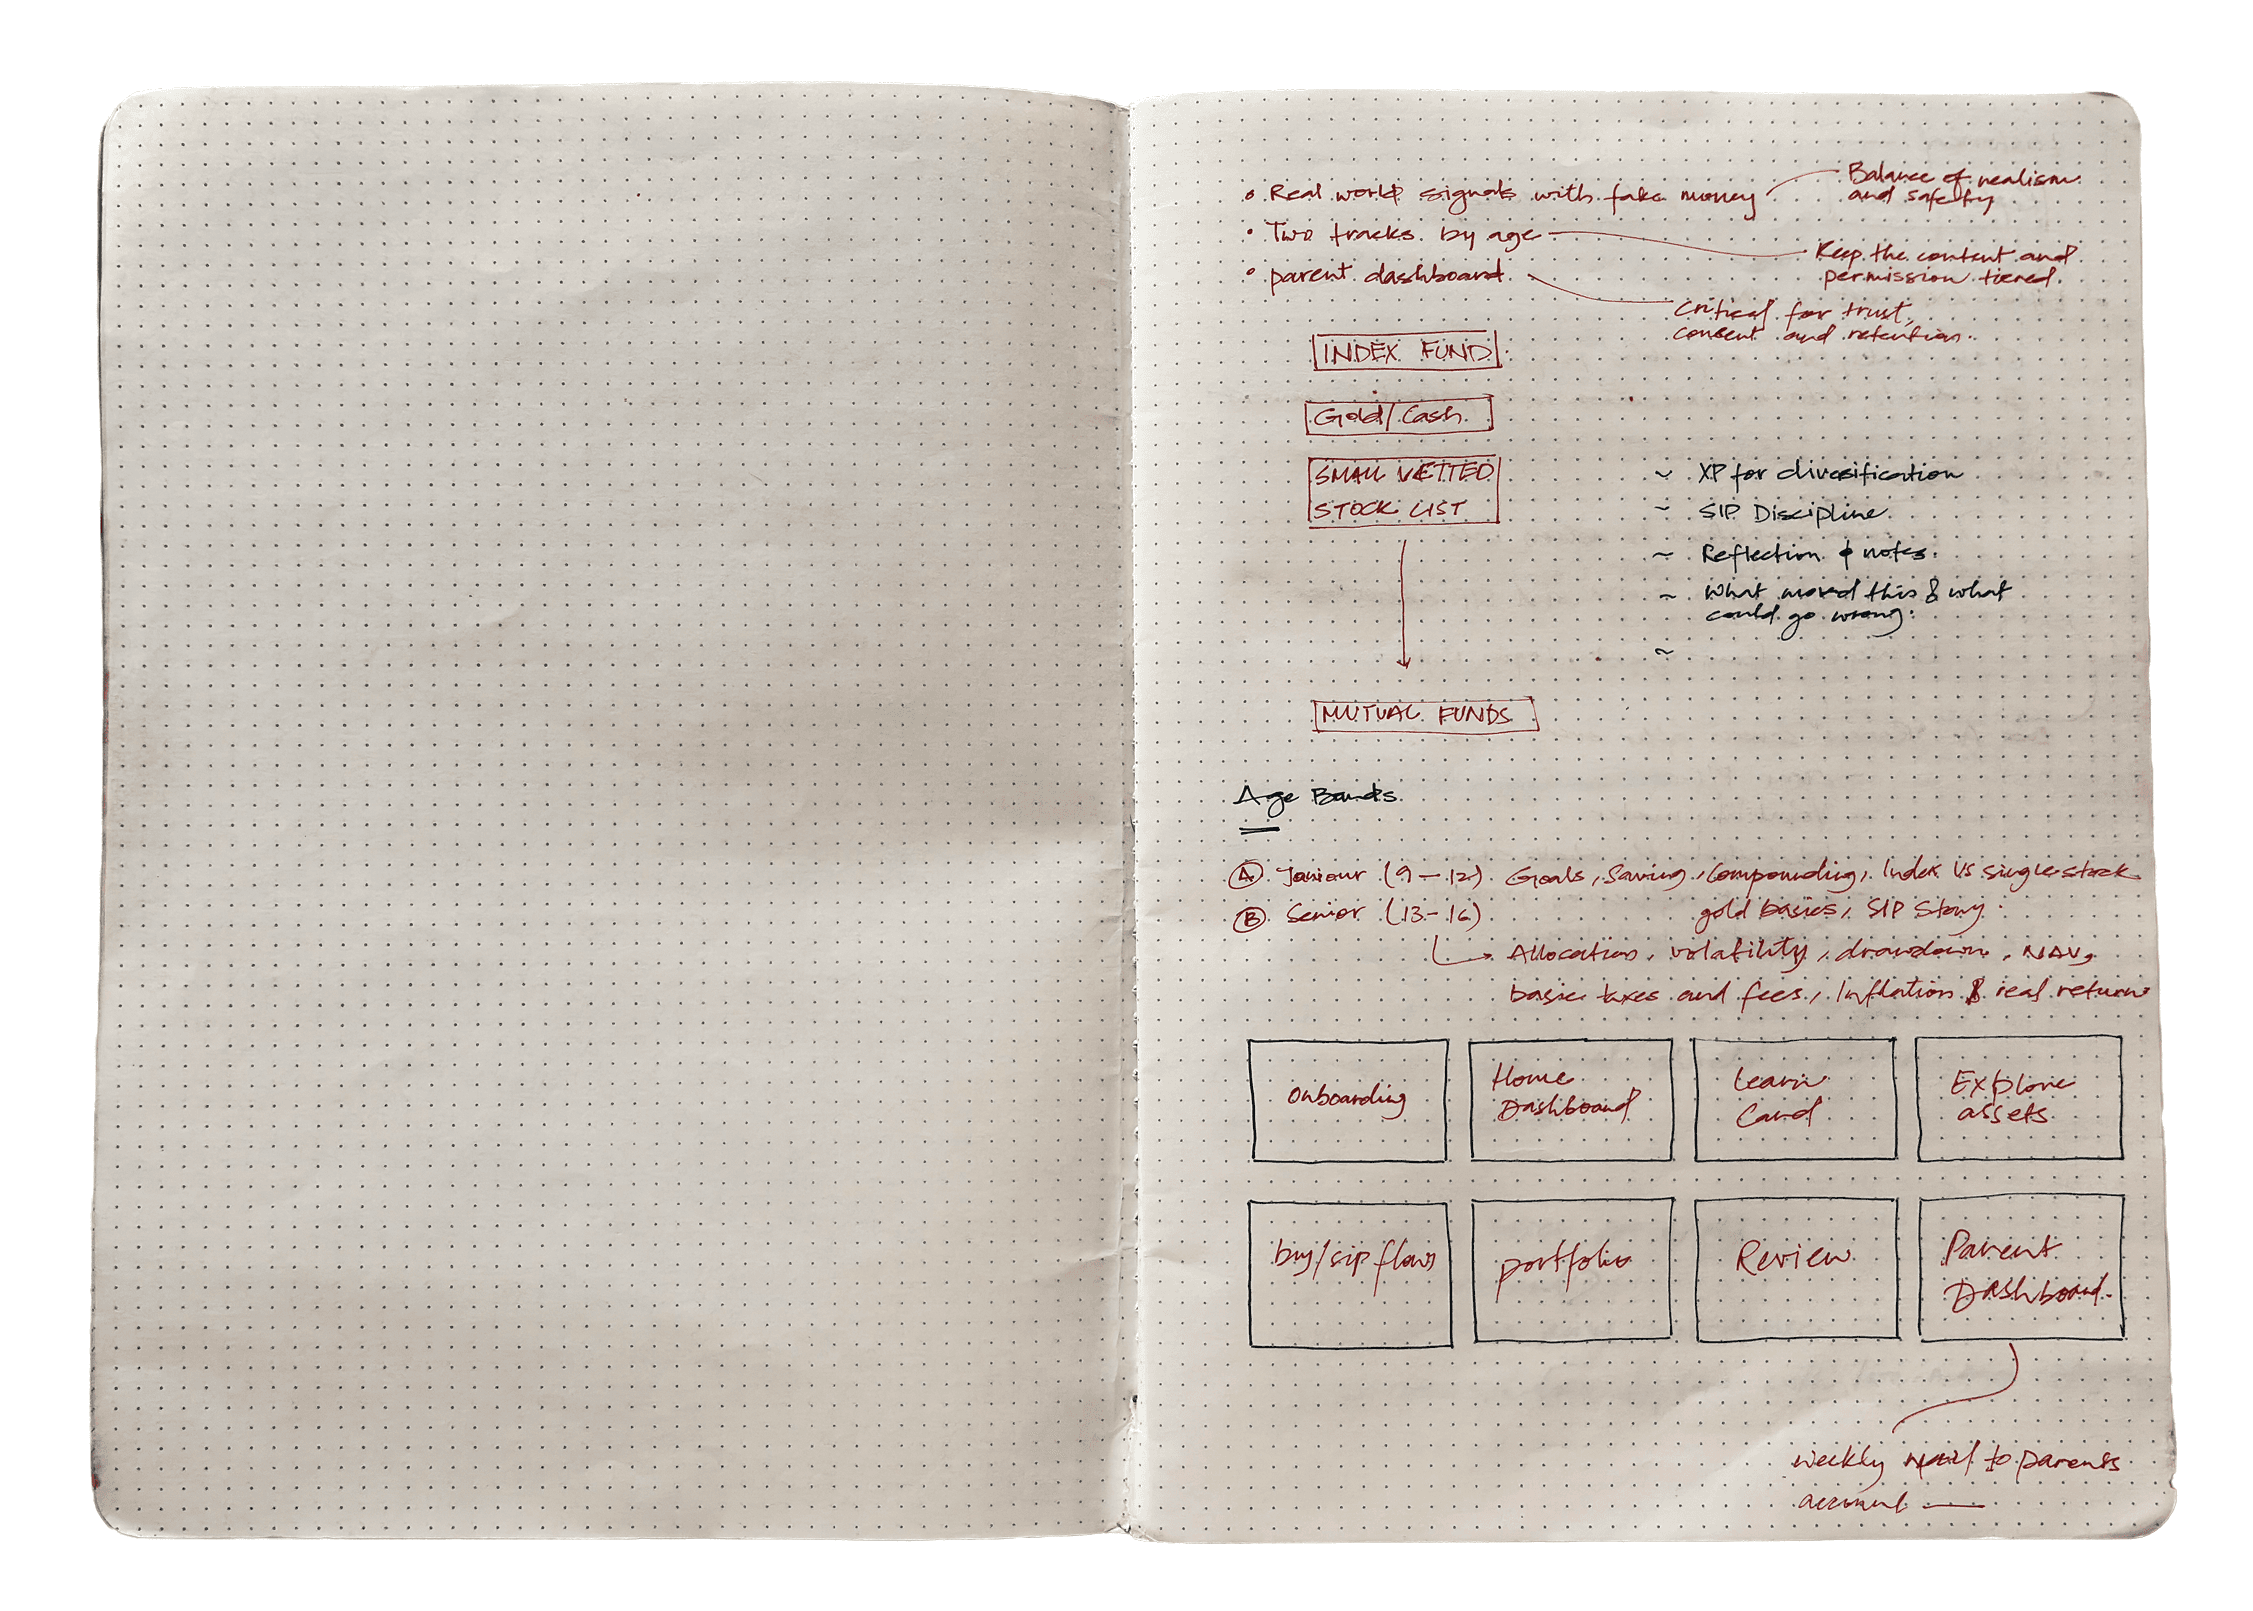 • Real world signals with fake money
Balance of realism
and safety
• Two tracks by age
Keep the content and
permission tiered.
• parent dashboard
Critical for trust,
consent and retention.
INDEX FUND
Gold/Cash
SMALL VETTED
STOCK LIST
~ XP for diversification
~ SIP Discipline
~ Reflection & notes.
~ What moved this & what
could go wrong.
~
MUTUAL FUNDS
Age Bands
Ⓐ Juniour (9 – 12) Goals, Saving, Compounding, Index Vs single stock
gold basics, SIP Story
Ⓑ Senior (13 – 16)
Allocation, volatility, drawdown, NAV,
basic taxes and fees, Inflation & real return
Onboarding
Home
Dashboard
Learn
Card
Explore
assets
buy/sip flows
portfolio
Review
Parent
Dashboard
weekly mail to parents
account —